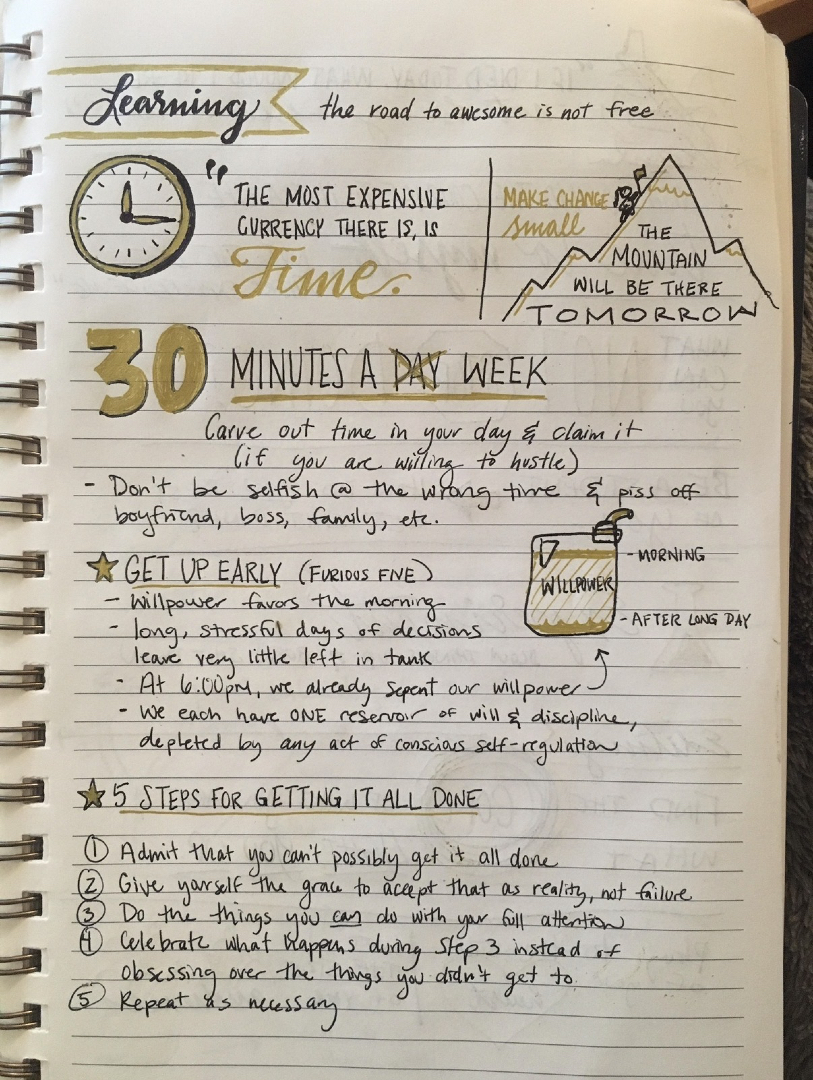 Learning the road to awesome is not free
"THE MOST EXPENSIVE
CURRENCY THERE IS, IS
Time.
MAKE CHANGE
small
THE
MOUNTAIN
WILL BE THERE
TOMORROW
30 MINUTES A DAY WEEK
Carve out time in your day & claim it
(if you are willing to hustle)
- Don't be selfish @ the wrong time & piss off
boyfriend, boss, family, etc.
GET UP EARLY (FURIOUS FIVE)
- Willpower favors the morning
- long, stressful days of decisions
leave very little left in tank
- At 6:00pm, we already sepent our willpower
- We each have ONE reservoir of will & discipline,
depleted by any act of conscious self-regulation
WILLPOWER
- MORNING
- AFTER LONG DAY
5 STEPS FOR GETTING IT ALL DONE
① Admit that you can't possibly get it all done
② Give yourself the grace to accept that as reality, not failure
③ Do the things you can do with your full attention
④ Celebrate what happens during Step 3 instead of
obsessing over the things you didn't get to.
⑤ Repeat as necessary